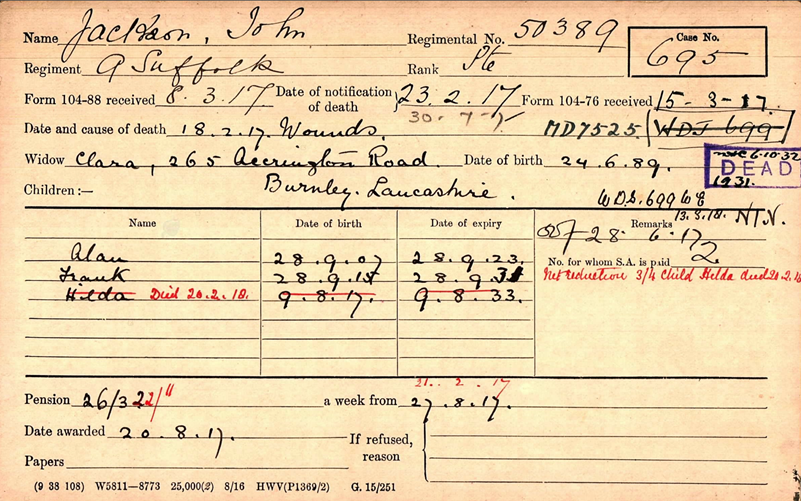 Name Jackson, John Regimental No. 50389 Case No. 695
Regiment 9 Suffolk Rank Pte
Form 104-88 received 8.3.17. Date of notification of death 23.2.17 Form 104-76 received 15-3-17.
30-7-15
Date and cause of death 18.2.17. Wounds. MD7525 WDS 699
Widow Clara, 265 Accrington Road. Date of birth 24.6.89. 6.10.32
DEAD
1931.
Children:— Burnley. Lancashire. WDS.699
Name Date of birth Date of expiry Remarks 13.3.18. N.T.N.
28.6.17
Alan 28.9.07 28.9.23. No. for whom S.A. is paid 2
Frank 28.9.15 28.9.31 Net reduction 3/4 Child Hilda died 20.2.18
Hilda Died 20.2.18. 9.8.17. 9.8.33.
21.2.17
Pension 26/3 22/11 a week from 27.8.17.
Date awarded 20.8.17. If refused, reason
Papers
(9 38 108) W5811—8773 25,000(2) 8/16 HWV(P1369/2) G. 15/251